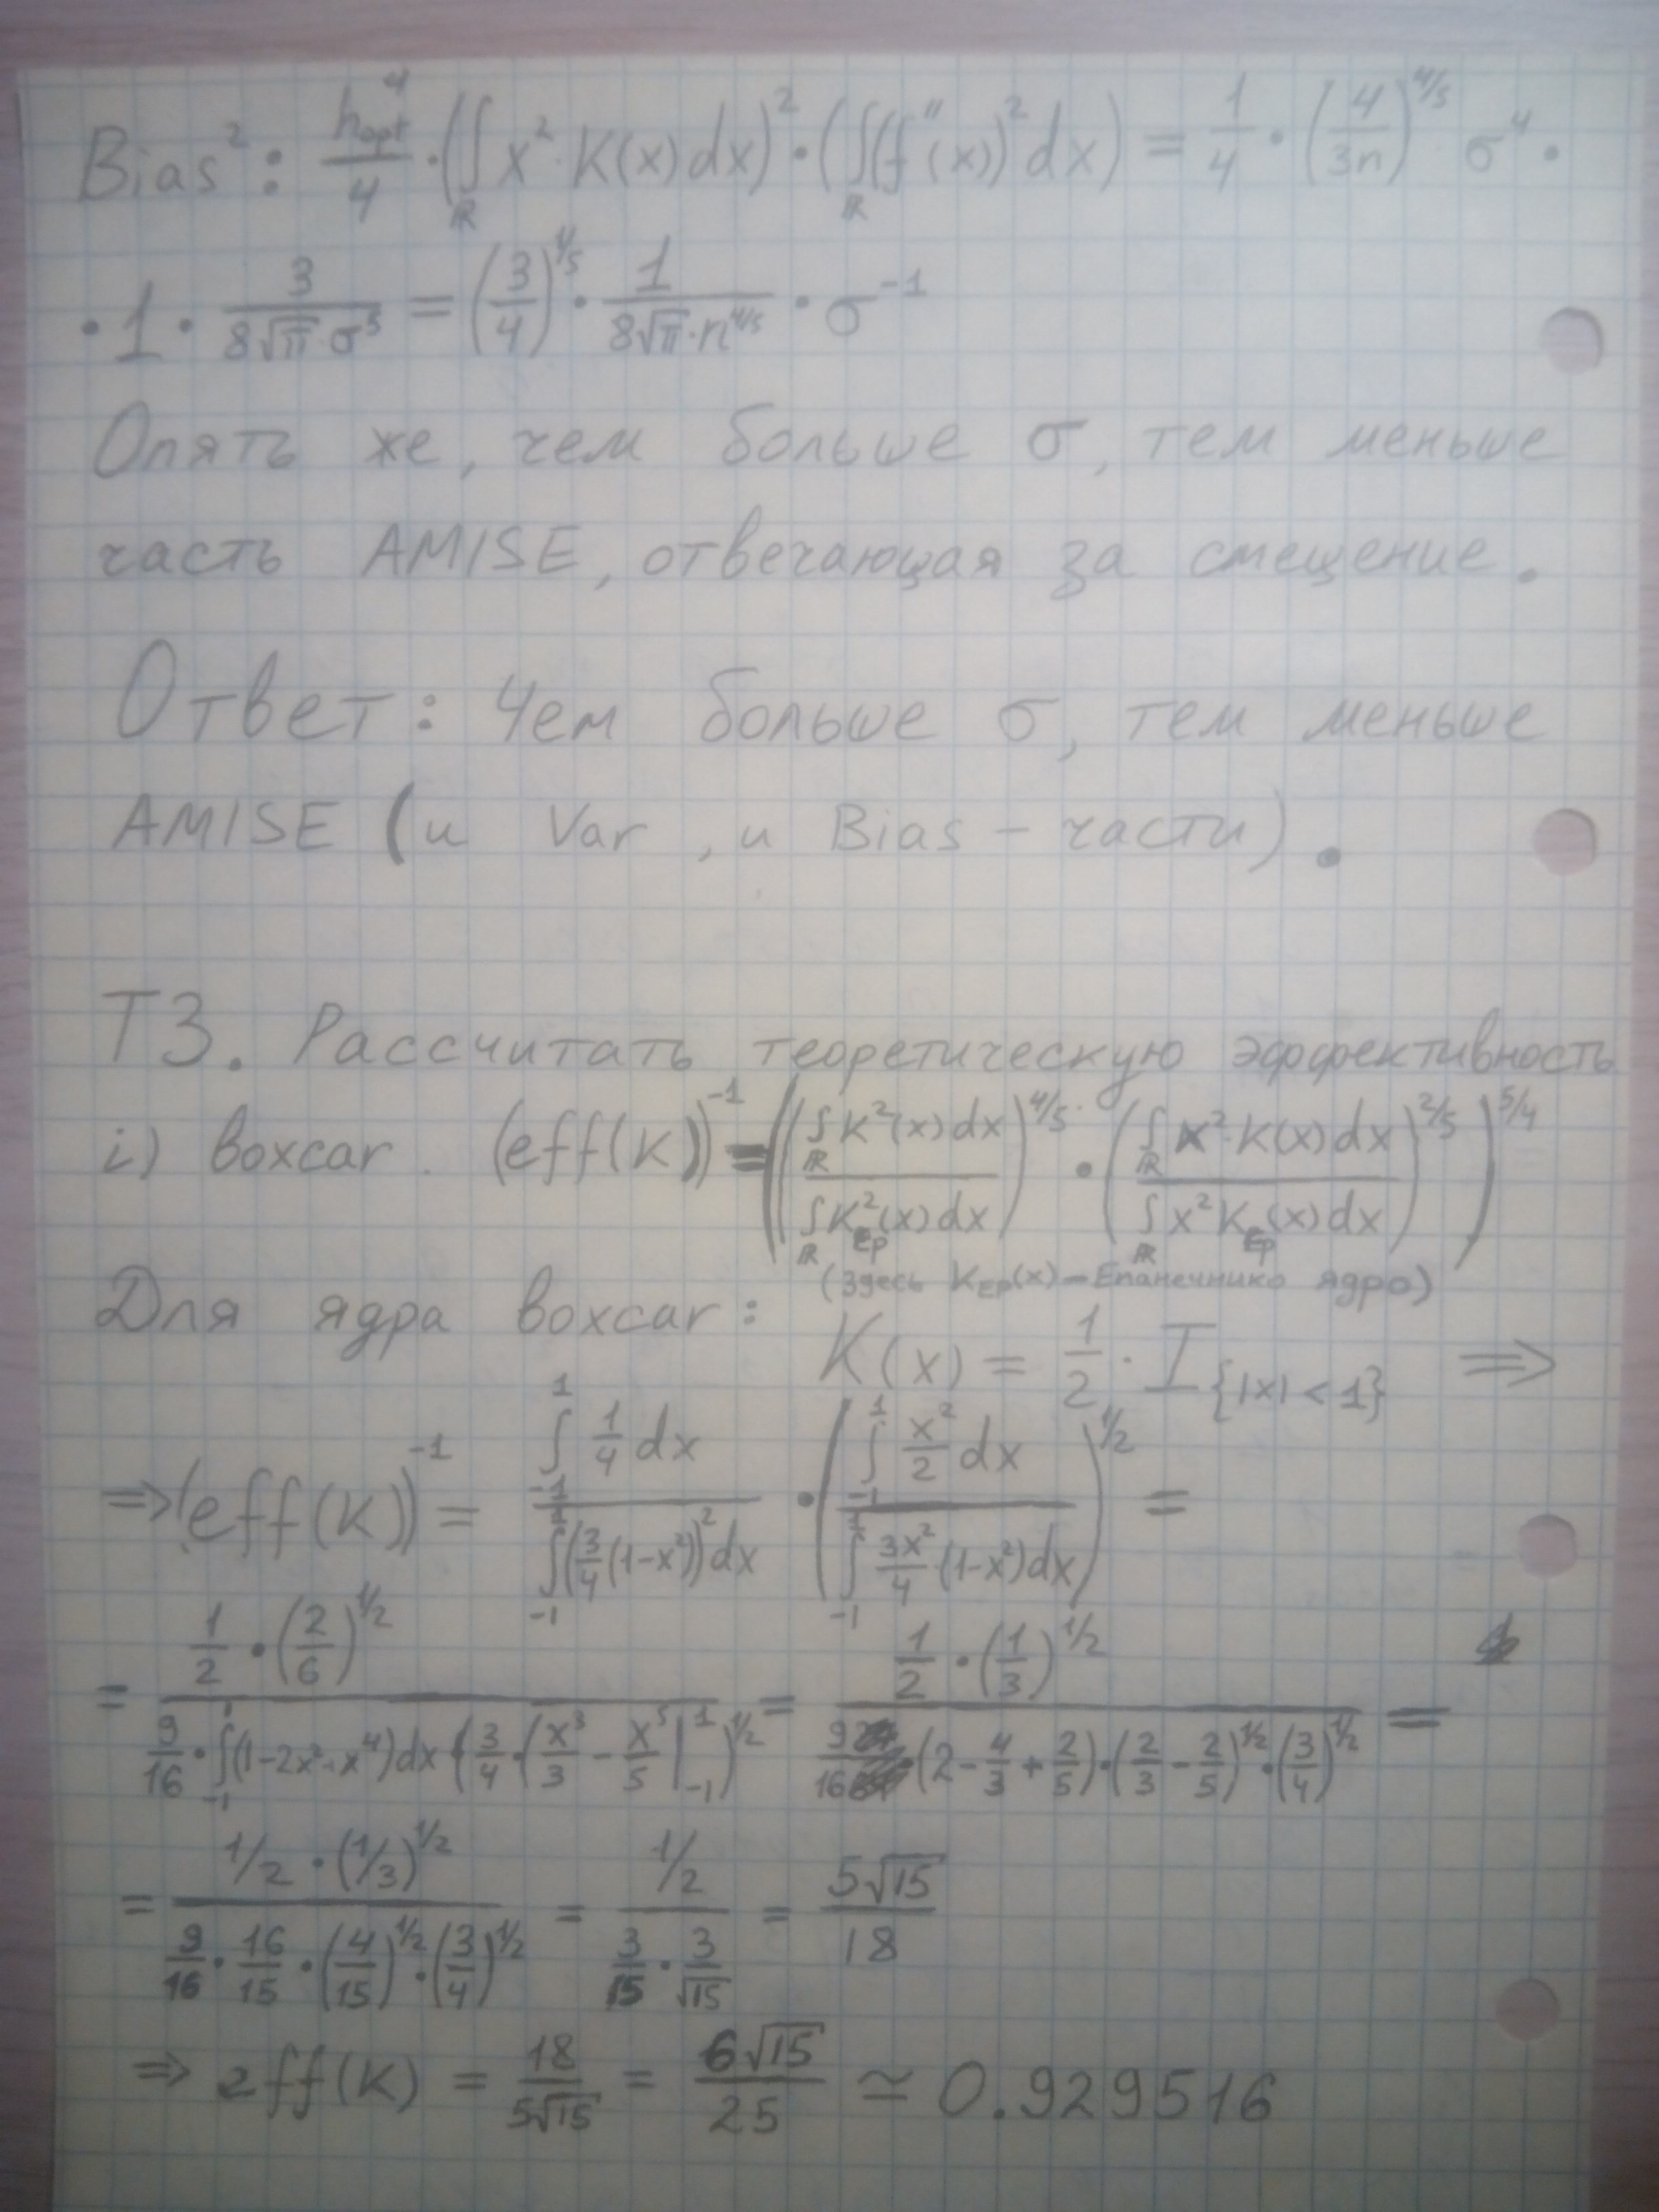 Bias²: h_opt⁴/4 · (∫_ℝ x²·K(x)dx)² · (∫_ℝ (f''(x))²dx) = 1/4 · (4/3n)^4/5 σ⁴ ·
· 1 · 3/(8√π·σ⁵) = (3/4)^1/5 · 1/(8√π·n^4/5) · σ⁻¹
Опять же, чем больше σ, тем меньше
часть AMISE, отвечающая за смещение.
Ответ: Чем больше σ, тем меньше
AMISE (и Var, и Bias - части).
Т3. Рассчитать теоретическую эффективность
i) boxcar. (eff(K))⁻¹ = ((∫_ℝ K²(x)dx / ∫_ℝ K_Ep²(x)dx)^4/5 · (∫_ℝ x²·K(x)dx / ∫_ℝ x²K_Ep(x)dx)^2/5)^5/4
(Здесь K_Ep(x) - Епанечнико ядро)
Для ядра boxcar: K(x) = 1/2 · I_{|x|<1} ⇒
⇒ (eff(K))⁻¹ = ∫_-1^1 1/4 dx / ∫_-1^1 (3/4(1-x²))²dx · (∫_-1^1 x²/2 dx / ∫_-1^1 3x²/4 · (1-x²)dx)^1/2 =
= 1/2 · (2/6)^1/2 / (9/16 · ∫_-1^1 (1-2x²+x⁴)dx · (3/4 · (x³/3 - x⁵/5 |_-1^1)^1/2) = 1/2 · (1/3)^1/2 / (9/16 · (2 - 4/3 + 2/5) · (2/3 - 2/5)^1/2 · (3/4)^1/2) =
= 1/2 · (1/3)^1/2 / (9/16 · 16/15 · (4/15)^1/2 · (3/4)^1/2) = 1/2 / (3/15 · 3/√15) = 5√15/18
⇒ eff(K) = 18/5√15 = 6√15/25 ≃ 0.929516